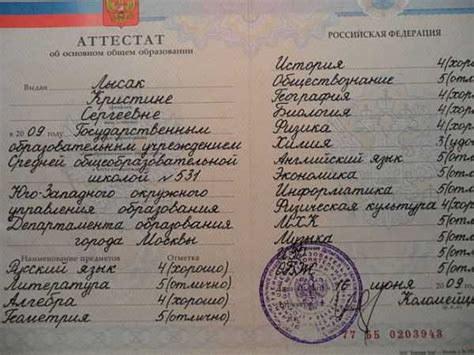 АТТЕСТАТ
об основном общем образовании
Выдан Лысак
Кристине
Сергеевне
в 2009 году Государственным
образовательным учреждением
Средней общеобразовательной
школой № 531
Юго-Западного окружного
управления образования
Департамента образования
города Москвы
Наименование предметов Отметка
Русский язык 4(хорошо)
Литература 5(отлично)
Алгебра 4(хорошо)
Геометрия 5(отлично)
РОССИЙСКАЯ ФЕДЕРАЦИЯ
История 4(хор
Обществознание 5(отл
География 4(хор
Биология 4(хор
Физика 4(хор
Химия 3(удо
Английский язык 5(отл
Экономика 5(отл
Информатика 5(отл
Физическая культура 4(хор
МХК 5(отл
Музыка 5(отл
ИЗО
ОБЖ
16 июня 2009
77 ББ 0203943